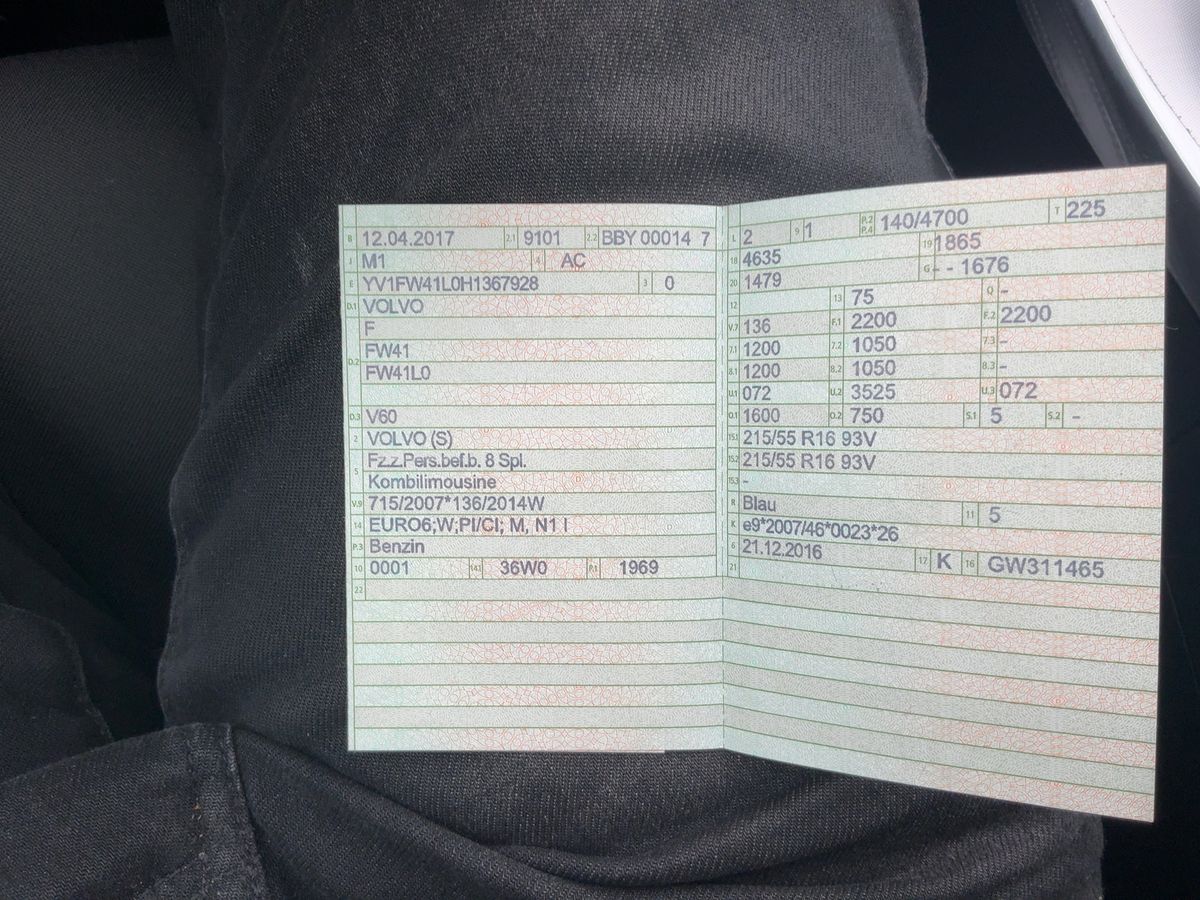 B 12.04.2017 2.1 9101 2.2 BBY 00014 7
J M1 4 AC
E YV1FW41L0H1367928 3 0
D.1 VOLVO
F
D.2 FW41
FW41L0
D.3 V60
2 VOLVO (S)
5 Fz.z.Pers.bef.b. 8 Spl.
Kombilimousine
V.9 715/2007*136/2014W
14 EURO6;W;PI/CI; M, N1 I
P.3 Benzin
10 0001 14.1 36W0 P.1 1969
22
L 2 9 1 P.2 P.4 140/4700 T 225
18 4635 19 1865
20 1479 G - - 1676
12 13 75 Q -
V.7 136 F.1 2200 F.2 2200
7.1 1200 7.2 1050 7.3 -
8.1 1200 8.2 1050 8.3 -
U.1 072 U.2 3525 U.3 072
O.1 1600 O.2 750 S.1 5 S.2 -
15.1 215/55 R16 93V
15.2 215/55 R16 93V
15.3 -
R Blau 11 5
K e9*2007/46*0023*26
6 21.12.2016 17 K 16 GW311465
21